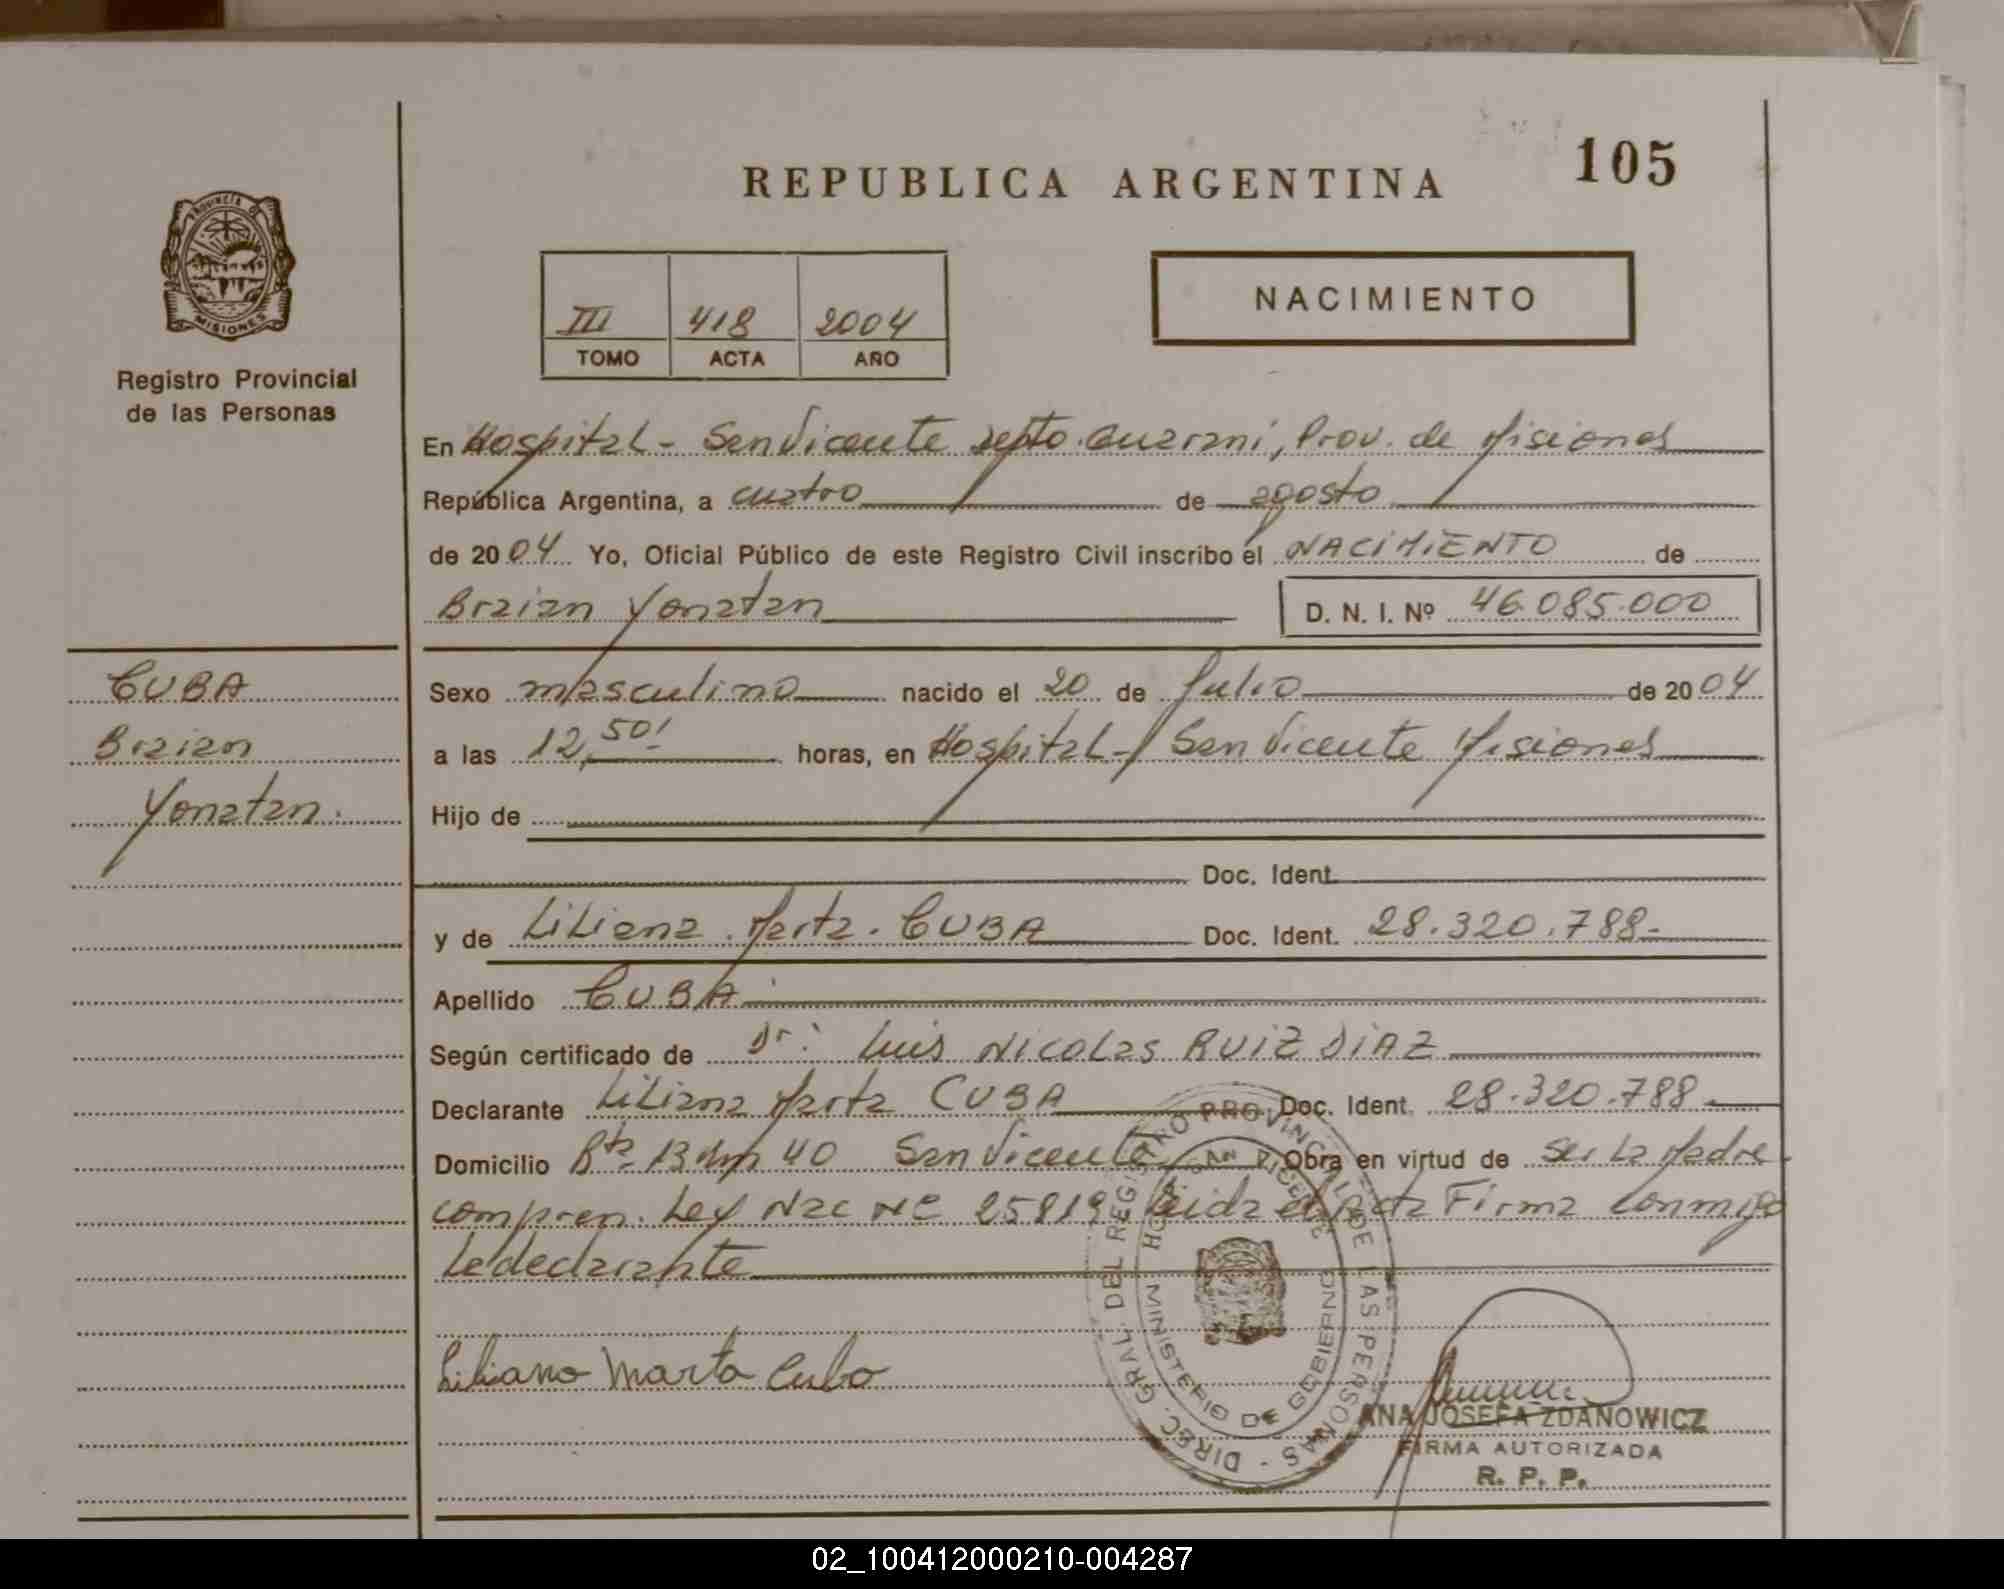 105
REPUBLICA ARGENTINA
PROVINCIA DE
MISIONES
Registro Provincial
de las Personas
III 418 2004
TOMO ACTA AÑO
NACIMIENTO
En Hospital - San Vicente Depto. Guarani, Prov. de Misiones
República Argentina, a cuatro de agosto
de 2004 Yo, Oficial Público de este Registro Civil inscribo el NACIMIENTO de
Braian Yonatan D. N. I. Nº 46.085.000
CUBA
Braian
Yonatan.
Sexo masculino nacido el 20 de Julio de 2004
a las 12,50' horas, en Hospital - San Vicente Misiones
Hijo de
Doc. Ident.
y de Liliana Marta CUBA Doc. Ident. 28.320.788-
Apellido CUBA
Según certificado de Dr: Luis Nicolas RUIZ DIAZ
Declarante Liliana Marta CUBA Doc. Ident. 28.320.788-
Domicilio Rta 13 Km 40 San Vicente Obra en virtud de ser La Madre
compren. Ley Nac Nº 25819 Leida el Acta Firma conmigo
La declarante
Liliana Marta Cuba
DIREC. GRAL. DEL REGISTRO PROVINCIAL DE LAS PERSONAS
SAN VICENTE
MINISTERIO DE GOBIERNO
ANA JOSEFA ZDANOWICZ
FIRMA AUTORIZADA
R. P. P.
02_100412000210-004287